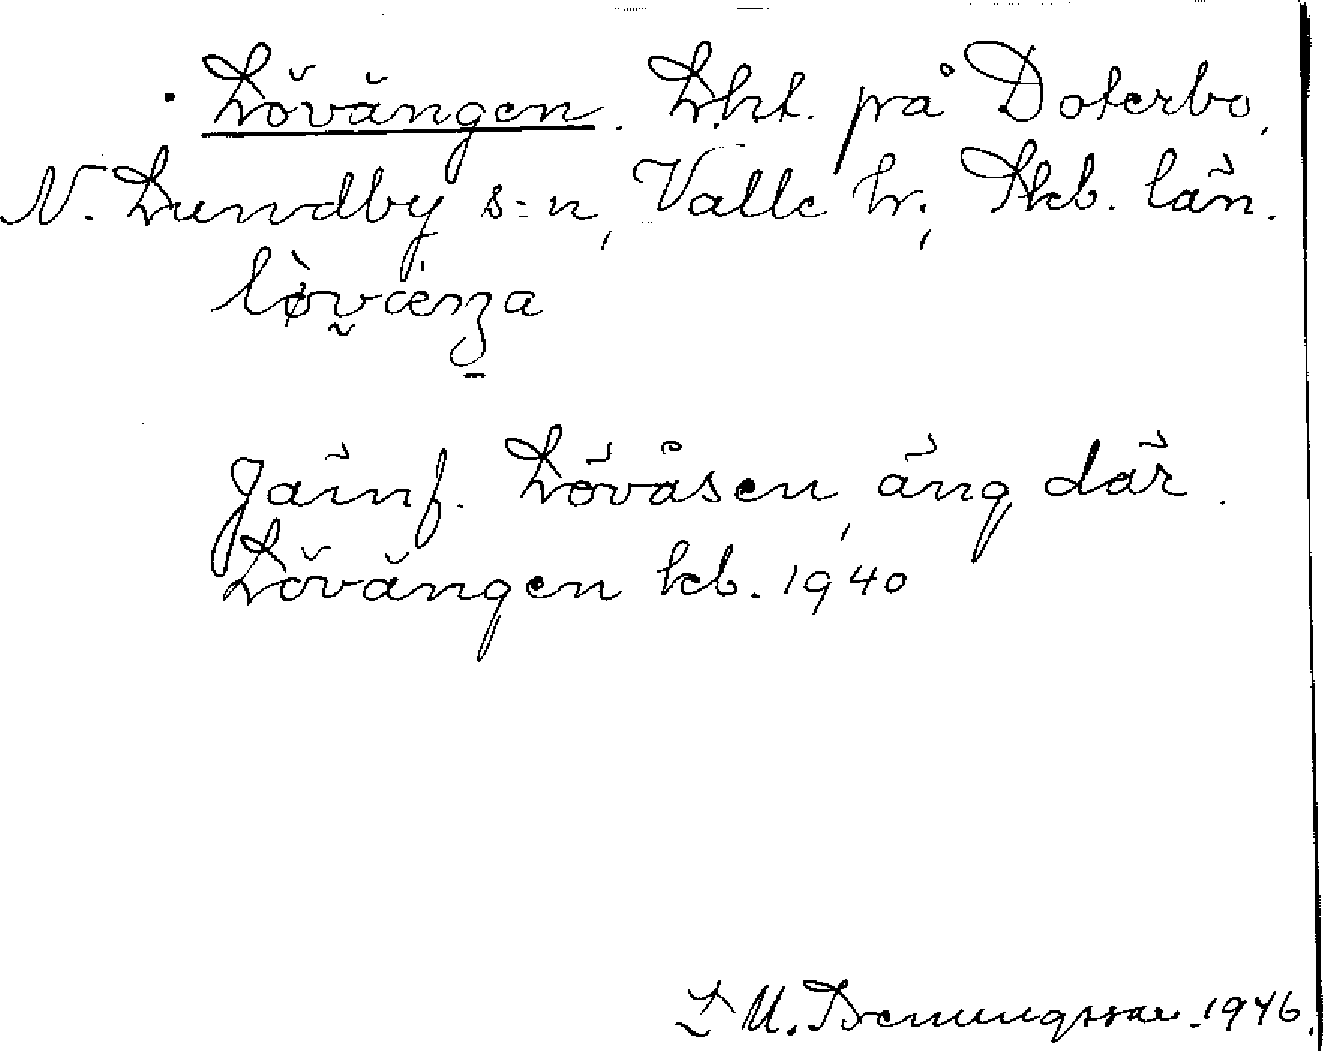 Lövängen. Lht. på Doterbo,
N. Lundby s:n, Valle hr; Skb. län.
lòvæŋa
Jämf. Lövåsen, äng där.
Lövängen kb. 1940
1946.